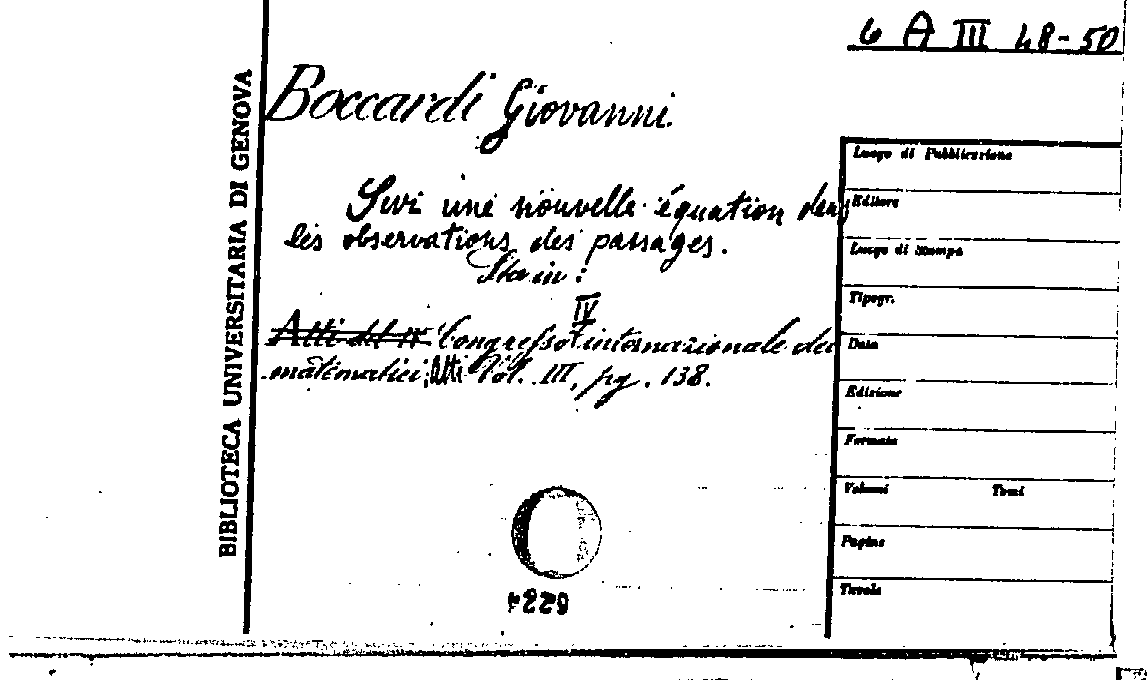 6 A III 48-50
BIBLIOTECA UNIVERSITARIA DI GENOVA
Boccardi Giovanni.
Sur une nouvelle équation dans
les observations des passages.
Sta in:
IV
Atti del IV Congresso internazionale dei
matematici, Atti Vol. III, pg. 138.
Luogo di Pubblicazione
Editore
Luogo di Stampa
Tipogr.
Data
Edizione
Formato
Volumi Tomi
Pagine
Tavole